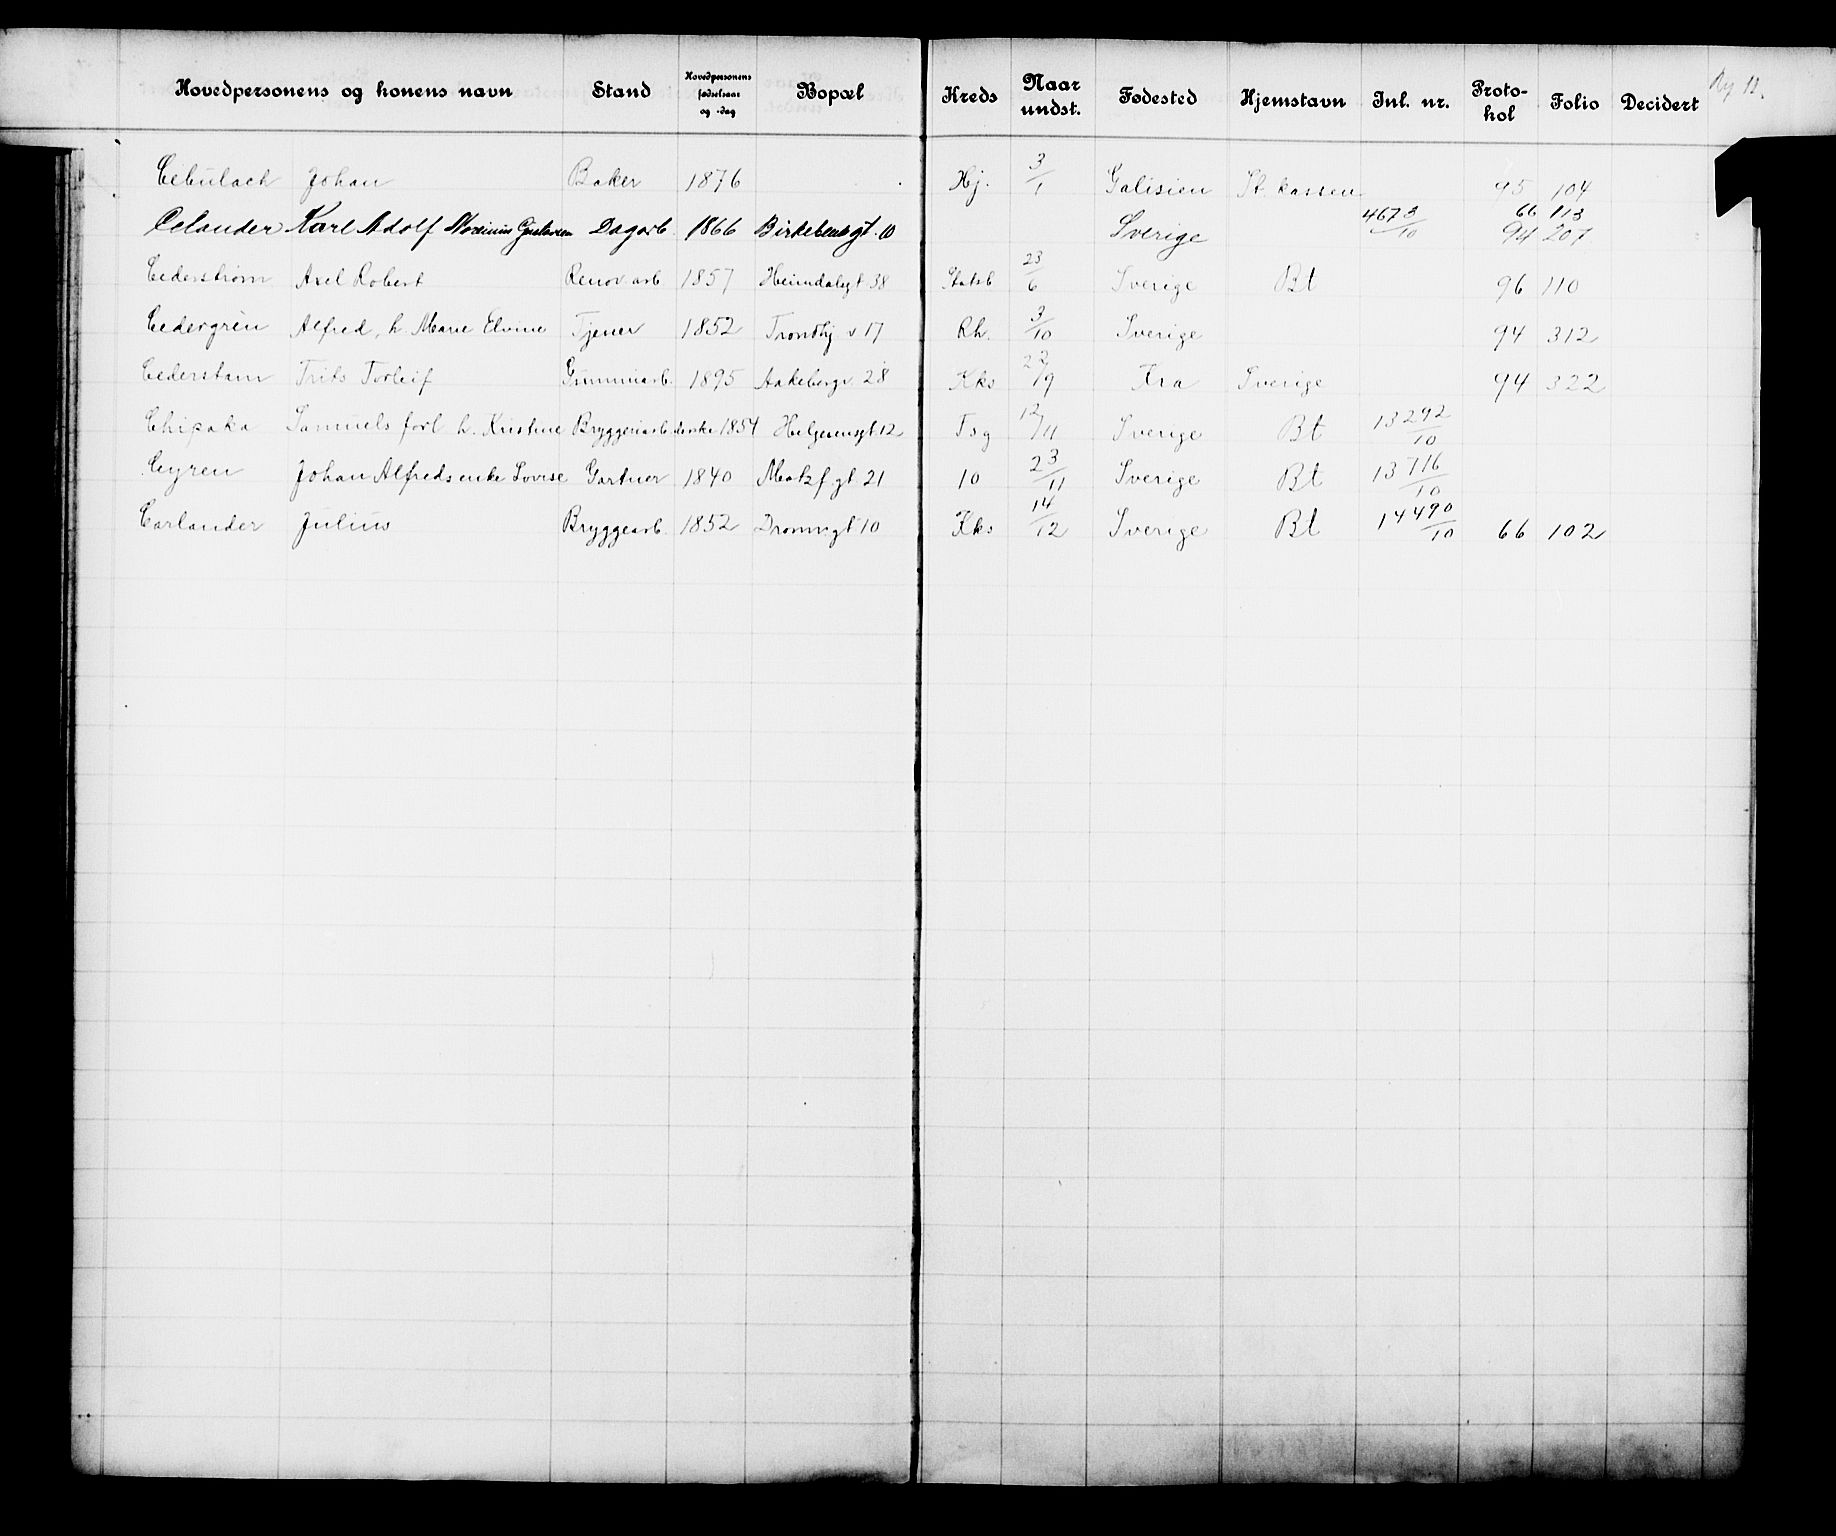 Hovedpersonens og konens navn Stand Hovedpersonens fødselsaar og -dag Bopæl Kreds Naar undst. Fødested Hjemstavn Inl. nr. Protokol Folio Decidert
Cibulach Johan Baker 1876 Hj. 3/1 Galisien St. kassen 95 104
Celander Karl Adolf Gustavsen Dagarb. 1866 Birkebeinergt. 10 Sverige 4673/10 66 113
94 207
Cederstrøm Axel Robert Renov. arb. 1857 Heimdalsgt 38 Statsb 23/6 Sverige Bt 96 110
Cedergrèn Alfred, h. Marie Elvine Tjener 1852 Trondhj. v 17 Rh. 3/10 Sverige 94 312
Cederstam Frits Torleif Gummiarb. 1895 Aakebergv. 28 Kks 22/9 Kra Sverige 94 322
Chipaka Samuels forl h. Kristine Bryggeriarb. enke 1854 Helgesensgt 12 Tsg 12/11 Sverige Bt 13292/10
Cyren Johan Alfreds enke Lovise Gartner 1840 Markf. gt. 21 10 23/11 Sverige Bt 13716/10
Carlander Julius Bryggearb. 1852 Dronn. gt 10 Kks 14/12 Sverige Bt 14490/10 66 102